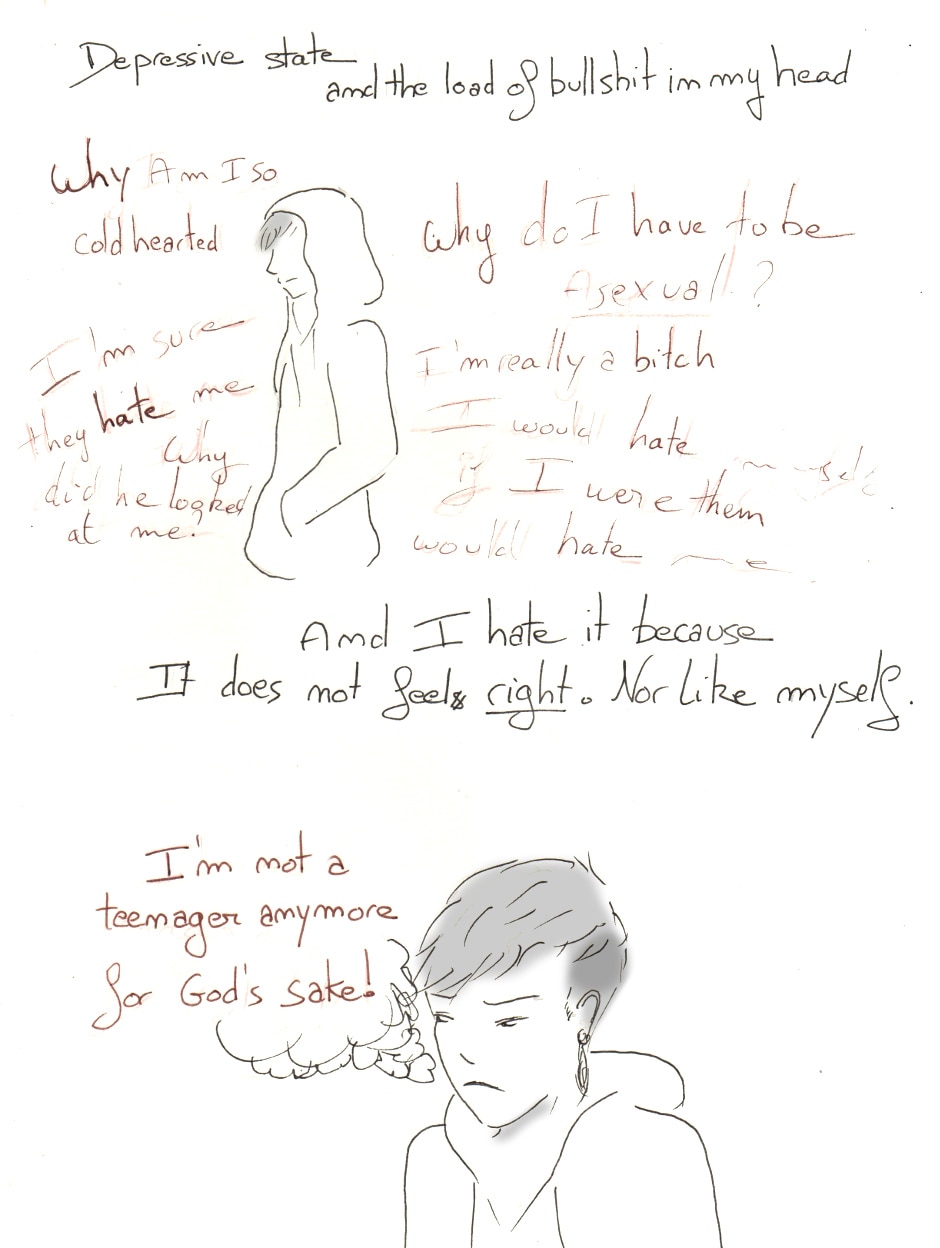 Depressive state
and the load of bullshit in my head
Why Am I so
cold hearted
I'm sure
they hate me
Why
did he looked
at me?
Why do I have to be
Asexual ?
I'm really a bitch
I would hate myself
if I were them
would hate me
And I hate it because
It does not feel right. Nor like myself.
I'm not a
teenager anymore
for God's sake!